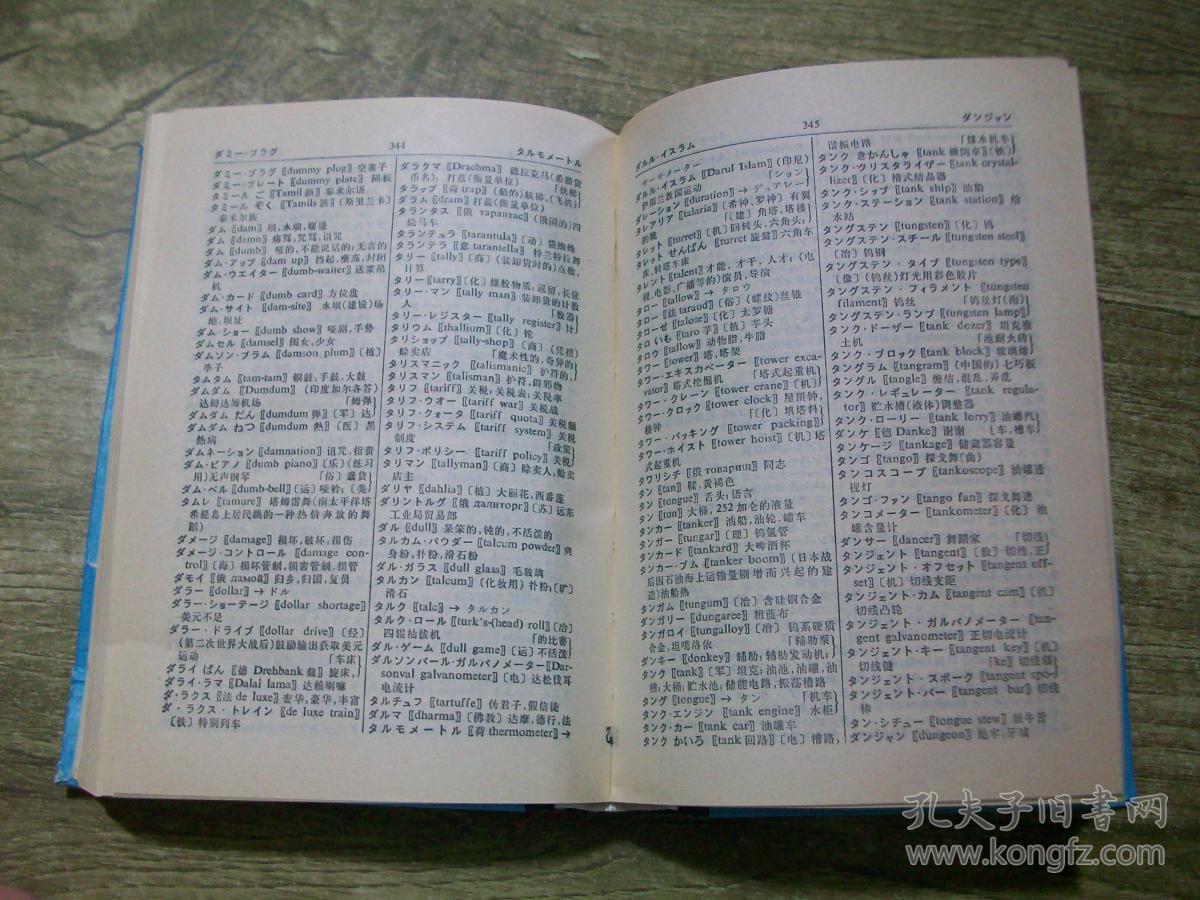 ダミー・プラグ
344
タルモメートル
ダミー・プラグ〚dummy plug〛空塞子
ダミー・プレート〚dummy plate〛隔板
タミール ご〚Tamil 語〛泰米尔语
タミール ぞく〚Tamils 族〛(斯里兰卡)
泰米尔族
ダム〚dam〛坝,水坝,堰堤
ダム〚damn〛痛骂,咒骂,诅咒
ダム〚dumb〛哑的,不能说话的;无言的
ダム・アップ〚dam up〛挡起,壅高,封闭
ダム・ウエイター〚dumb-waiter〛送菜吊
机
ダム・カード〚dumb card〛方位盘
ダム・サイト〚dam-site〛水坝(建设)场
地,坝址
ダム・ショー〚dumb show〛哑剧,手势
ダムセル〚damsel〛闺女,少女
ダムソン・プラム〚damson plum〛〔植〕
李子
タムタム〚tam-tam〛铜鼓,手鼓,大鼓
ダムダム〚Dumdum〛(印度加尔各答)
达姆达姆机场「姆弹」
ダムダム だん〚dumdum 弹〛〔军〕达
ダムダム ねつ〚dumdum 熱〛〔医〕黑
热病
ダムネーション〚damnation〛诅咒,指责
ダム・ピアノ〚dumb piano〛〔乐〕(练习
用)无声钢琴「〔俗〕蠢货
ダム・ベル〚dumb-bell〛〔运〕哑铃;〔美〕
タムレ〚tamure〛塔姆雷舞(南太平洋塔
希提岛上居民跳的一种热情奔放的舞
蹈)
ダメージ〚damage〛损坏,破坏,损伤
ダメージ・コントロール〚damage con-
trol〛〔海〕损坏管制,损害管制,损管
ダモイ〚俄 дамой〛归乡,归国,复员
ダラー〚dollar〛→ドル
ダラー・ショーテージ〚dollar shortage〛
美元不足
ダラー・ドライブ〚dollar drive〛〔经〕
(第二次世界大战后)鼓励输出获取美元
运动「车床」
ダライ ばん〚德 Drehbank 盤〛旋床,
ダライ・ラマ〚Dalai lama〛达赖喇嘛
ダ・ラクス〚法 de luxe〛奢华,豪华,丰富
ダ・ラクス・トレイン〚de luxe train〛
〔铁〕特别列车
ダラクマ〚Drachma〛德拉克马(希腊货
币名),打蓝(衡量单位)「扶梯」
タラップ〚荷 trap〛(船的)舷梯,(飞机)
ダラム〚dram〛打蓝(衡量单位)
タランタス〚俄 тарантас〛(俄国的)四
轮马车
タランチュラ〚tarantula〛〔动〕袋蜘蛛
タランテラ〚意 tarantella〛特兰特拉舞
タリー〚tally〛〔商〕(装卸货时的)点数,
计算
タリー〚tarry〛〔化〕煤胶物质;逗留,长住
タリー・マン〚tally man〛装卸货的计数
人「数器」
タリー・レジスター〚tally register〛计
タリウム〚thallium〛〔化〕铊
タリショップ〚tally-shop〛〔商〕(凭褶)
赊卖店「魔术性的,奇异的
タリスマニック〚talismanic〛护符的,
タリスマン〚talisman〛护符,辟邪物
タリフ〚tariff〛关税;关税表;关税率
タリフ・ウオー〚tariff war〛关税战
タリフ・クォータ〚tariff quota〛关税额
タリフ・システム〚tariff system〛关税
制度「政策」
タリフ・ポリシー〚tariff policy〛关税
タリマン〚tallyman〛〔商〕赊卖人,赊卖
店主
ダリヤ〚dahlia〛〔植〕大丽花,西番莲
ダリントルグ〚俄 далиторг〛〔苏〕远东
工业局贸易部
ダル〚dull〛呆笨的,钝的,不活泼的
タルカム・パウダー〚talcum powder〛爽
身粉,扑粉,滑石粉
ダル・ガラス〚dull glass〛毛玻璃
タルカン〚talcum〛(化妆用)扑粉;〔矿〕
滑石
タルク〚talc〛→ タルカン
タルク・ロール〚turk's-(head) roll〛〔冶〕
四辊抽拔机「的比赛」
ダル・ゲーム〚dull game〛〔运〕不活泼
ダルソンバール・ガルバノメーター〚Dar-
sonval galvanometer〛〔电〕达松伐耳
电流计
タルチュフ〚tartuffe〛伪君子,假信徒
ダルマ〚dharma〛〔佛教〕达摩,德行,法
タルモメートル〚荷 thermometer〛→
ダルル・イスラム
345
ダンジャン
サーモメーター
ダルル・イスラム〚Darul Islam〛(印尼)
伊斯兰教国运动「ション」
ダレーション〚duration〛→ デュアレー
タレアリア〚talaria〛〔希神、罗神〕有翼
的靴「〔建〕角塔,塔楼
タレット〚turret〛〔机〕回转头,六角头;
タレット せんばん〚turret 旋盤〛六角车
床,转塔车床
タレント〚talent〛才能,才干,人才;(电
视、电影、广播等的)演员,导演
タロー〚tallow〛→ タロウ
タロー〚法 taraud〛〔俗〕(螺纹)丝锥
タローゼ〚talose〛〔化〕太罗糖
タロ いも〚taro 芋〛〔植〕芋头
タロウ〚tallow〛动物脂,牛脂
タワー〚tower〛塔,塔架
タワー・エキスカベーター〚tower exca-
vator〛塔式挖掘机「塔式起重机」
タワー・クレーン〚tower crane〛〔机〕
タワー・クロック〚tower clock〛屋顶钟,
楼钟「〔化〕填塔料
タワー・パッキング〚tower packing〛
タワー・ホイスト〚tower hoist〛〔机〕塔
式起重机
タワリシチ〚俄 товарищ〛同志
タン〚tan〛鞣,黄褐色
タン〚tongue〛舌头;语言
タン〚tun〛大桶,252 加仑的液量
タンカー〚tanker〛油船,油轮,罐车
タンガー〚tungar〛〔理〕钨氩管
タンカード〚tankard〛大啤酒杯
タンカー・ブム〚tanker boom〛(日本战
后因石油海上运输量剧增而兴起的建
造)油船热
タンガム〚tungum〛〔冶〕含硅铜合金
ダンガリー〚dungaree〛粗蓝布
タンガロイ〚tungalloy〛〔冶〕钨系硬质
合金,坦噶洛依「辅助泵」
ダンキー〚donkey〛辅助;辅助发动机;
タンク〚tank〛〔军〕坦克;油池,油罐,油
槽;大桶;贮水池;储能电路,振荡槽路
タング〚tongue〛→ タン「机车」
タンク・エンジン〚tank engine〛水柜
タンク・カー〚tank car〛油罐车
タンク かいろ〚tank 回路〛〔电〕槽路,
谐振电路「煤水机车」
タンク きかんしゃ〚tank 機関車〛〔铁〕
タンク・クリスタライザー〚tank crystal-
lizer〛〔化〕槽式结晶器
タンク・シップ〚tank ship〛油船
タンク・ステーション〚tank station〛给
水站
タングステン〚tungsten〛〔化〕钨
タングステン・スチール〚tungsten steel〛
〔冶〕钨钢
タングステン・タイプ〚tungsten type〛
〔像〕(钨丝)灯光用彩色胶片
タングステン・フィラメント〚tungsten
filament〛钨丝「钨丝灯(泡)
タングステン・ランプ〚tungsten lamp〛
タンク・ドーザー〚tank dozer〛坦克推
土机「池耐火砖
タンク・ブロック〚tank block〛玻璃熔
タングラム〚tangram〛(中国的)七巧板
タングル〚tangle〛缠结,混乱,弄乱
タンク・レギュレーター〚tank regula-
tor〛贮水槽(液体)调整器
タンク・ローリー〚tank lorry〛油罐汽
ダンケ〚德 Danke〛谢谢「车,槽车
タンケージ〚tankage〛储藏器容量
タンゴ〚tango〛探戈舞(曲)
タンコスコープ〚tankoscope〛油罐透
视灯
タンゴ・ファン〚tango fan〛探戈舞迷
タンコメーター〚tankometer〛〔化〕油
罐含量计
ダンサー〚dancer〛舞蹈家「切线」
タンジェント〚tangent〛〔数〕切线,正
タンジェント・オフセット〚tangent off-
set〛〔机〕切线支距
タンジェント・カム〚tangent cam〛〔机〕
切线凸轮
タンジェント・ガルバノメーター〚tan-
gent galvanometer〛正切电流计
タンジェント・キー〚tangent key〛〔机〕
切线键「ke〛切线辐
タンジェント・スポーク〚tangent spo-
タンジェント・バー〚tangent bar〛切线
棒
タン・シチュー〚tongue stew〛燉牛舌
ダンジャン〚dungeon〛地牢,牙城
孔夫子旧书网
www.kongfz.com